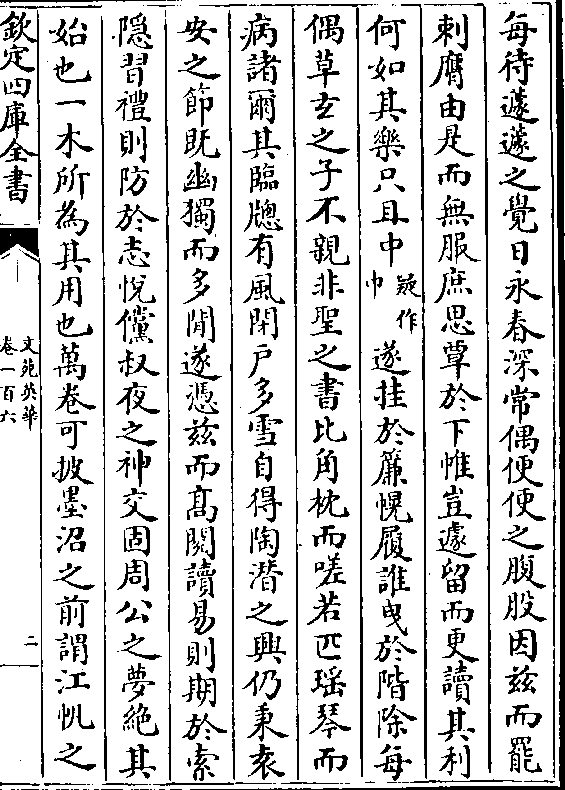 每待蘧蘧之覺日永春深常偶便便之腹股因兹而罷
刺膺由是而無服庶思覃於下帷豈遽留而更讀其利
何如其樂只且中疑作巾遂挂於簾幌履誰曳於階除每
偶草玄之子不親非聖之書比角枕而嗟若匹瑶琴而
病諸爾其臨牕有風閉户多雪自得陶潛之興仍秉袁
安之節既幽獨而多閒遂憑兹而髙閱讀易則期於索
隱習禮則防於志悅儻叔夜之神交固周公之夢絶其
始也一木所為其用也萬卷可披墨沼之前謂江帆之
欽定四庫全書
文苑英華
卷一百六
二